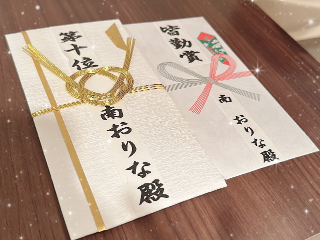 第十位
南おりな殿
皆勤賞
南おりな殿